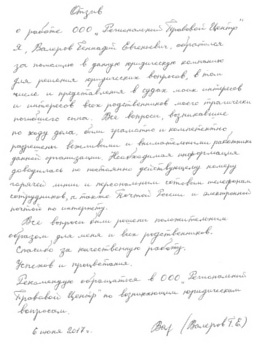 Отзыв
о работе ООО „Региональный Правовой Центр"
Я, Валеров Геннадий Евгеньевич, обратился
за помощью в данную юридическую компанию
для решения юридических вопросов, в том
числе и представления в судах моих интересов
и интересов всех родственников моего трагически
погибшего сына. Все вопросы, возникавшие
по ходу дела, были грамотно и компетентно
разрешены вежливыми и внимательными работниками
данной организации. Необходимая информация
доводилась по постоянно действующему номеру
горячей линии и персональным сотовым телефонам
сотрудников, а также Почтой России и электронной
почтой по интернету.
Все вопросы были решены положительным
образом для меня и всех родственников.
Спасибо за качественную работу.
Успехов и процветания.
Рекомендую обращаться в ООО „Региональный
Правовой Центр по возникающим юридическим
вопросам.
6 июня 2017г. Вал (Валеров Г.Е.)